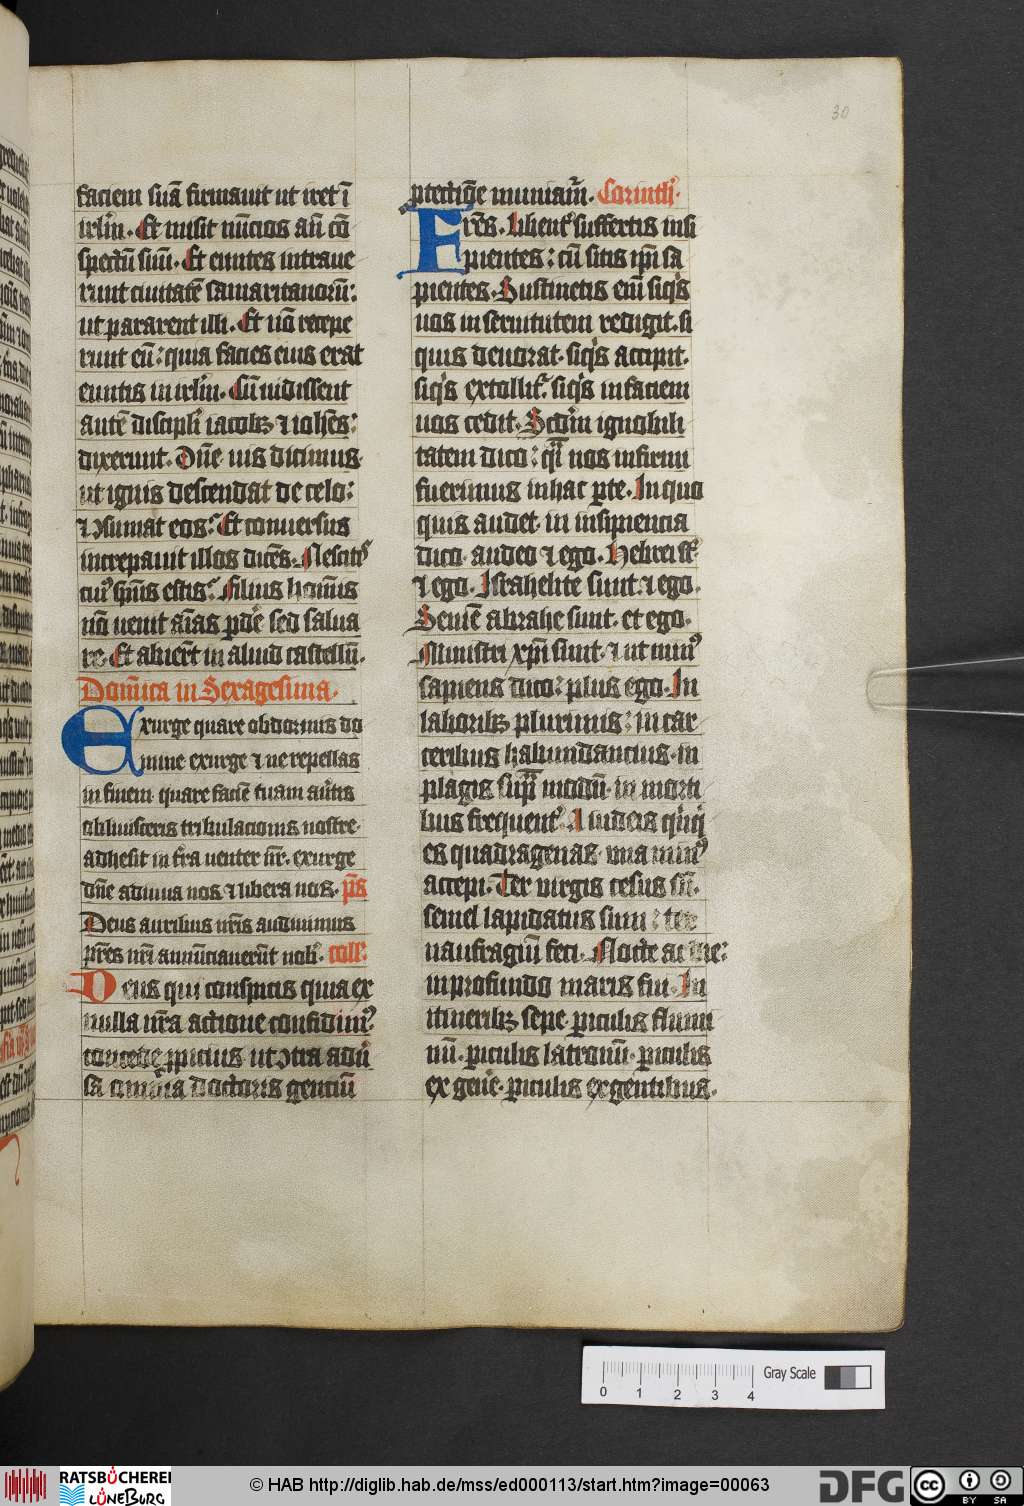 30
faciem suā firmauit ut iret ī
irl̄m. Et misit nūcios an̄ cō
spectū suū. Et euntes intraue
runt ciuitatē samaritanorū:
ut pararent illi. Et nō recepe
runt eū: quia facies eius erat
euntis in irl̄m. Cū uidissent
autē discipl̄i iacobꝫ ⁊ ioh̄es:
dixerunt. Dn̄e uis dicimus
ut ignis descendat de celo:
⁊ ꝯsumat eos. Et conuersus
increpauit illos dicēs. Nescitꝭ
cuiꝰ sp̄us estis. Filius hoīnis
nō uenit aīas ꝑdē sed salua
re. Et abiert̄ in aliud castellū.
Domīca in Sexagesima.
Exurge quare obdormis do
mine exurge ⁊ ne repellas
in finem quare faciē tuam au̓tis
obliuisceris tribulacionis nostre
adhesit in tr̄a uenter nr̄. exurge
dn̄e adiuua nos ⁊ libera nos. p̄s
Deus auribus nr̄is audiuimus
pr̄es nr̄i annūciauerūt nobꝭ. coll̄.
Deus qui conspicis quia ex
nulla nr̄a actione confidimꝰ
concede ꝓpicius ut ꝯtra adū̓
sa omnia doctoris gentium
ꝓtectiōe muniam̄. Corinth̓.
Frēs. Libentꝰ suffertis insi
pientes: cū sitis ip̄i sa
pientes. Sustinetis eīm siq̓s
uos in seruitutem redigit. si
quis deuorat. siq̓s accipit.
siq̓s extollit̓. siq̓s in faciem
uos cedit. Scd̄m ignobili
tatem dico: qͣi nos infirmi
fuerimus in hac ꝑte. In quo
quis audet. in insipiencia
dico. audeo ⁊ ego. Hebrei st̄
⁊ ego. Israhelite sunt. ⁊ ego.
Semē abrahe sunt. et ego.
Ministri xp̄i sunt. ⁊ ut minꝰ
sapiens dico: plus ego. In
laboribꝫ plurimis: in car
ceribus habundancius. in
plagis supͣ modū. in morti
bus frequent̓. A iudeis q̓nq̓
es quadragenas una minꝰ
accepi. Ter virgis cesus sū.
semel lapidatus sum: ter
naufragiū feci. Nocte ac die:
in profundo maris fui. In
itineribꝫ sepe. ꝑiculis flumi
nū. ꝑiculis latronū. ꝑiculis
ex gen̓e. ꝑiculis ex gentibus.
0 1 2 3 4
Gray Scale
RATSBÜCHEREI
LÜNEBURG
© HAB http://diglib.hab.de/mss/ed000113/start.htm?image=00063
DFG
cc
BY SA